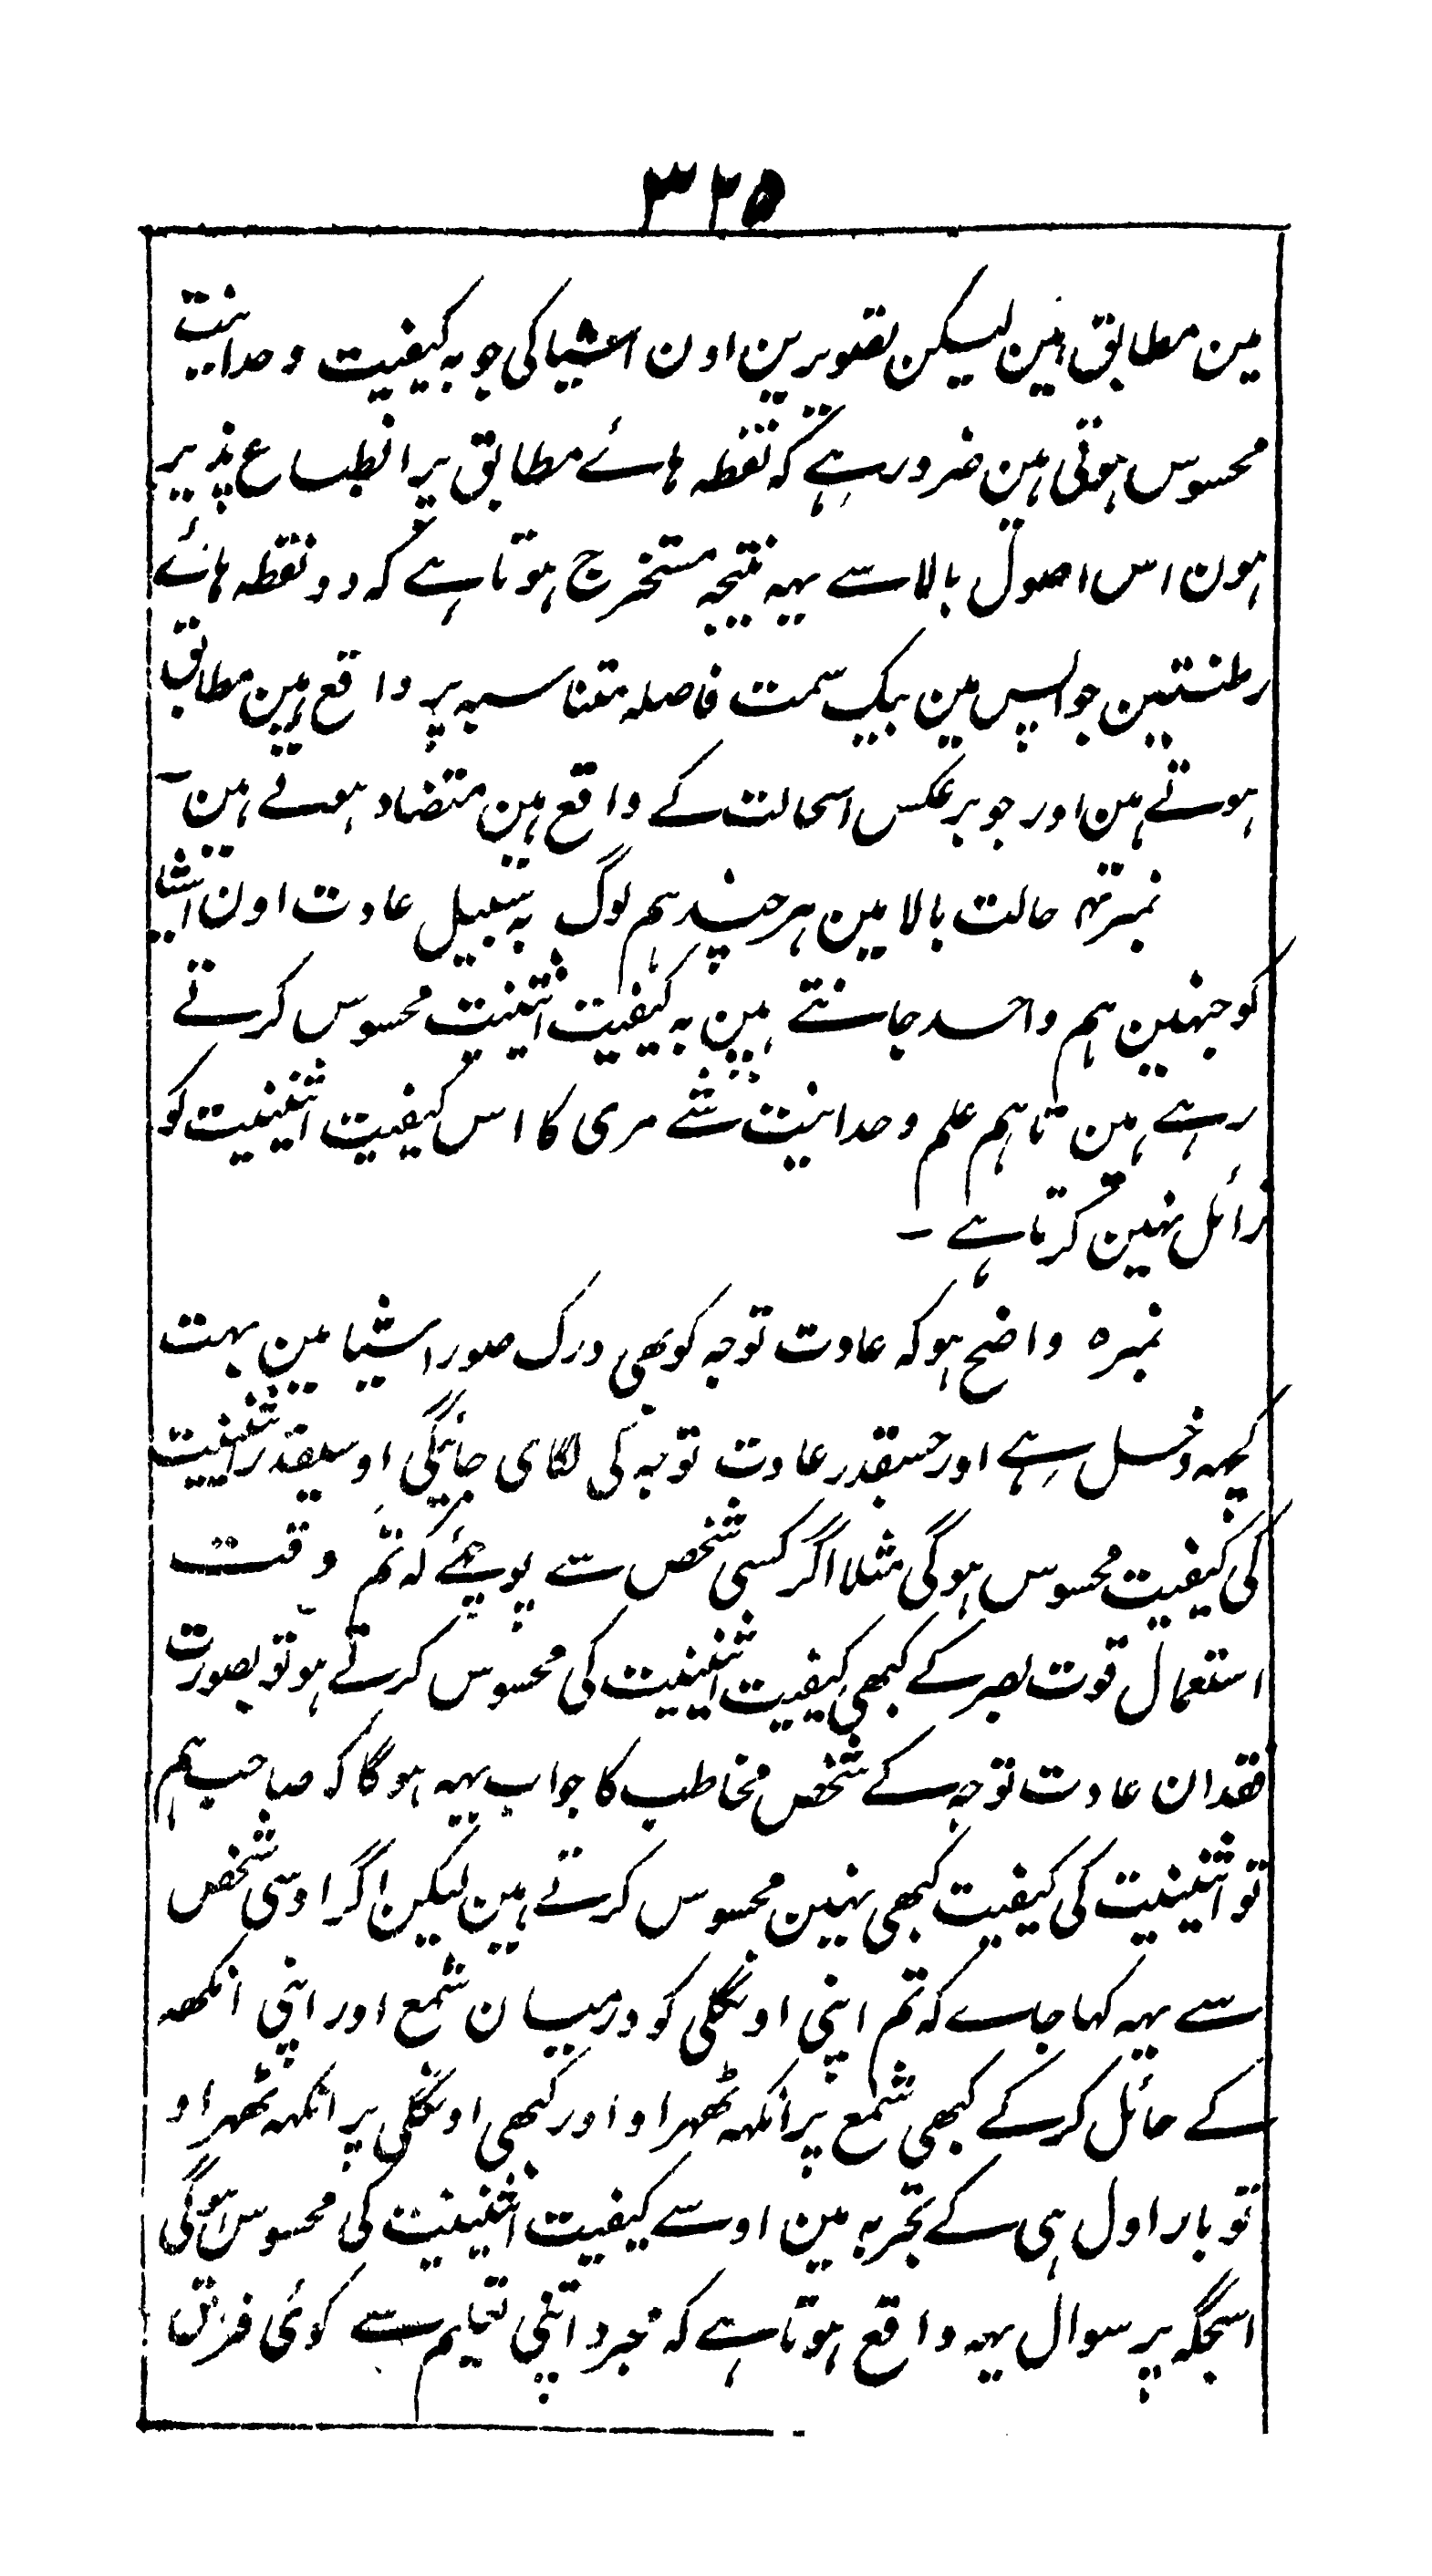 ۳۲۵
مین مطابق ہین لیکن تصویرین اون اشیا کی جو بہ کیفیت وحدانیت
محسوس ہوتی ہین ضرور ہے کہ نقطہ ہائے مطابق پر انطباع پذیر
ہون اس اصول بالا سے یہہ نتیجہ مستخرج ہوتا ہے کہ دو نقطہ ہائے
رطنتین جو اپس مین بیک سمت فاصلہ متناسبہ پر واقع ہین مطابق
ہوتے ہین اور جو برعکس اسحالت کے واقع ہین متضاد ہوتے ہین ۔
نمبر۴ حالت بالا مین ہرچند ہم لوگ بہ سبیل عادت اون اشیا
کو جنہین ہم واحد جانتے ہین بہ کیفیت اثنینیت محسوس کرتے
رہے ہین تاہم علم وحدانیت شے مری کا اس کیفیت اثنینیت کو
زائل نہین کرتا ہے ۔
نمبر۵ واضح ہو کہ عادت توجہ کو بھی درک صور اشیا مین بہت
کچہہ دخل ہے اور جسقدر عادت توجہ کی لگای جائیگی اوسیقدر اثنینیت
کی کیفیت محسوس ہوگی مثلا اگر کسی شخص سے پوچھئے کہ تم وقت
استعمال قوت بصر کے کبھی کیفیت اثنینیت کی محسوس کرتے ہو تو بصورت
فقدان عادت توجہ کے شخص مخاطب کا جواب یہہ ہوگا کہ صاحب ہم
تو اثنینیت کی کیفیت کبھی نہین محسوس کرتے ہین لیکن اگر اوسی شخص
سے یہہ کہا جاے کہ تم اپنی اونگلی کو درمیان شمع اور اپنی انکھہ
کے حائل کرکے کبھی شمع پر انکہہ ٹھہراو اور کبھی اونگلی پر انکہہ ٹھہراو
تو بار اول ہی کے تجربہ مین اوسے کیفیت اثنینیت کی محسوس ہوگی
اسجگہ پر سوال یہہ واقع ہوتا ہے کہ مجرد اتنی تعلیم سے کوئی فرق